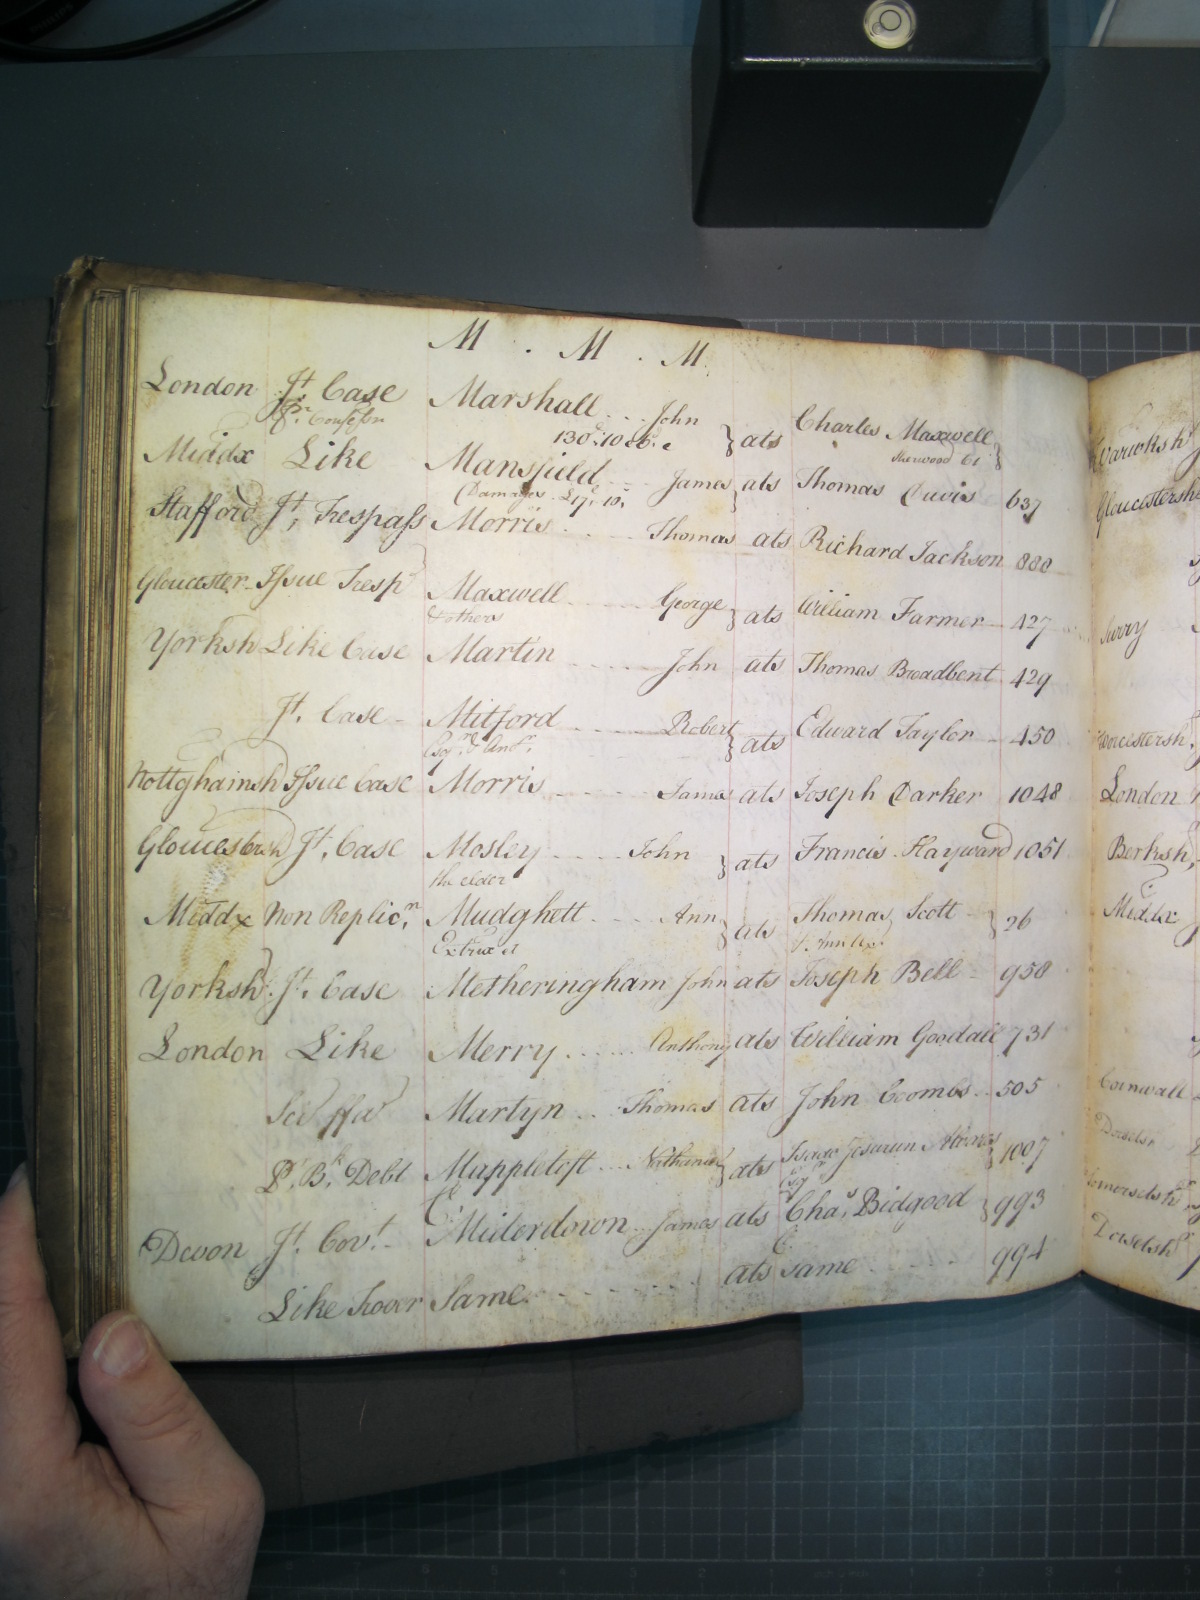 M . M . M.
London Jt. Case Marshall... John } ats Charles Maxwell }
130. 10. 6.
Middx Like Mansfield James } ats Thomas Davis 637
Damages £17. 10.
Stafford Jt, Trespass Morris.... Thomas ats Richard Jackson 880
Gloucester Issue Tresp Maxwell...... George } ats William Farmer 427
& others
Yorksh Like Case Martin..... John ats Thomas Broadbent 429
Jt. Case Mitford...... Robert } ats Edward Taylor 450
Nottghamsh Issue Case Morris...... James ats Joseph Darker 1048
Jt. Case Mosley..... John } ats Francis Hayward 1051
the elder
Middx Non Replicn. Ann } ats Thomas Scott } 26
Yorksh Jt. Case Metheringham John ats Joseph Bell 958
London Like Merry...... Anthony ats William Goodall 731
Martyn... Thomas ats John Coombs.. 505
Debt Mappletoft... Nathaniel } ats Isaac } 1007
Devon Jt. Covt. James ats Chas. Bidgood } 993
Like Trover Same. ats same 994
Surry
London
Berksh,
Middx
Cornwall
Dorsetsh